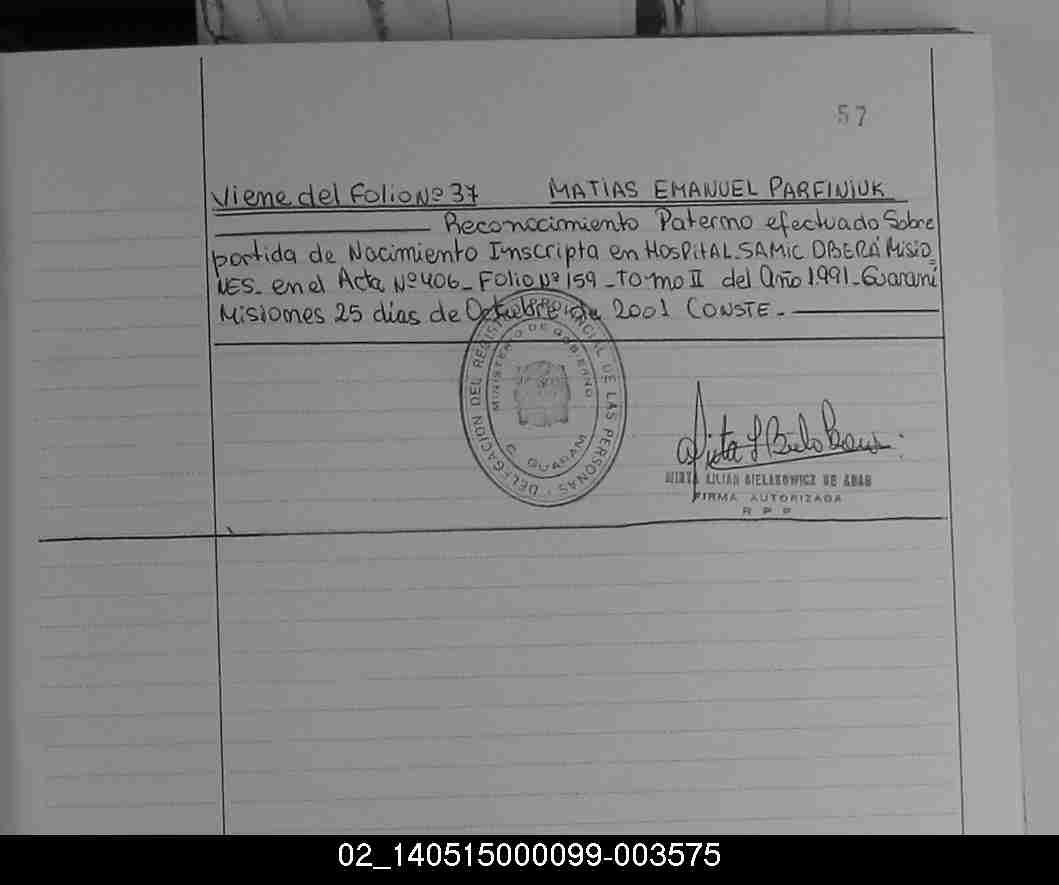 57
Viene del Folio Nº 37 MATIAS EMANUEL PARFINIUK
Reconocimiento Paterno efectuado Sobre
partida de Nacimiento Inscripta en HOSPITAL SAMIC OBERÁ MISIO=
NES- en el Acta Nº 406- Folio Nº 159 - Tomo II del Año 1.991- Guaraní
Misiones 25 días de Octubre de 2001 CONSTE.-
DELEGACION DEL REGISTRO PROVINCIAL DE LAS PERSONAS
MINISTERIO DE GOBIERNO
GUARANI
MIRTA LILIAN BIELAKOWICZ DE
FIRMA AUTORIZADA
R P P
02_140515000099-003575